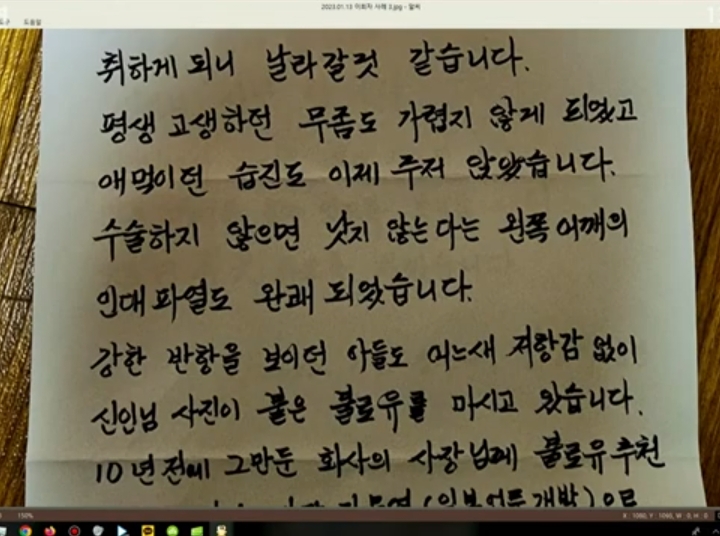 2023.01.13 이회자 사례 3.jpg - 알씨
도구 도움말
취하게 되니 날라갈것 같습니다.
평생 고생하던 무좀도 가렵지 않게 되었고
애먹이던 습진도 이제 주저 앉았습니다.
수술하지 않으면 낫지 않는다는 왼쪽 어깨의
인대파열도 완쾌 되었습니다.
강한 반항을 보이던 아들도 어느새 저항감 없이
신인님 사진이 붙은 불로유를 마시고 있습니다.
10년전에 그만둔 회사의 사장님께 불로유추천
150%